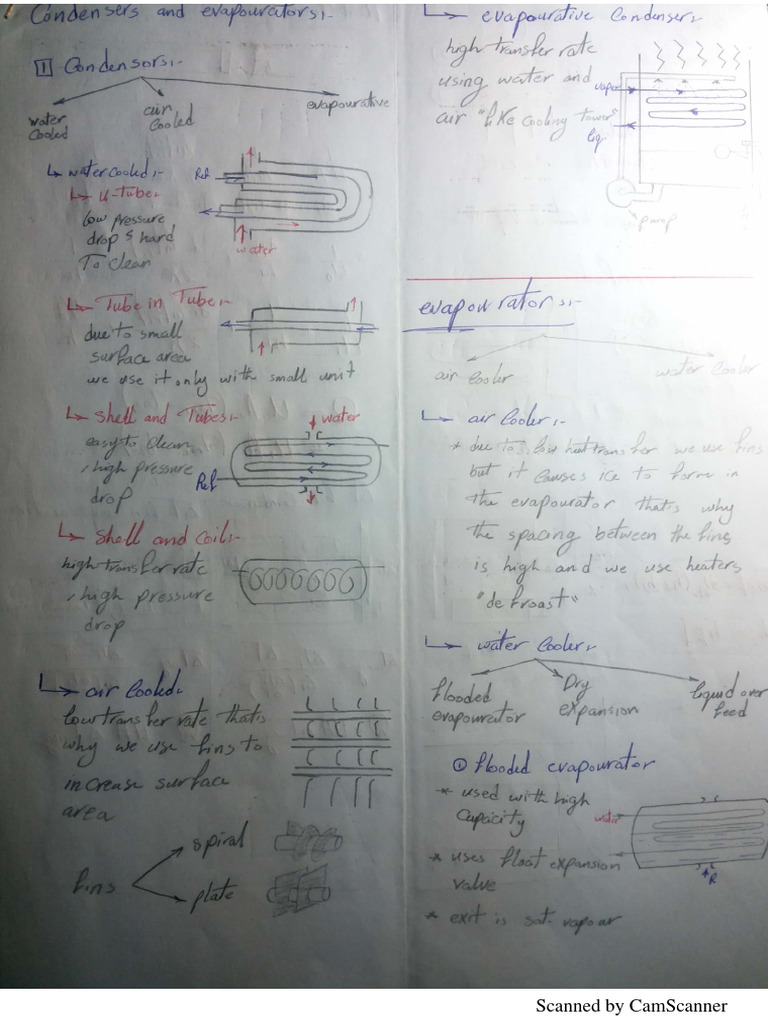 Condensers and evapourators:-
1 Condensors:-
water
Cooled
air
Cooled
evapourative
watercooled:-
Ref
U-Tube:
low pressure
drop & hard
To clean
water
Tube in Tube:-
due to small
surface area
we use it only with small unit
Shell and Tubes:-
water
easy to clean
, high pressure
drop
Ref
Shell and Coil:-
high transfer rate
, high pressure
drop
air Cooled:
low transfer rate thats
why we use fins to
increase surface
area
fins
spiral
plate
evapourative Condenser:
high transfer rate
using water and
air "like cooling tower"
vapor
liq.
pump
evapourators:-
air cooler
water Cooler
air Cooler:-
* due to low heat transfer we use fins
but it causes ice to form in
the evapourator thats why
the spacing between the fins
is high and we use heaters
"defroast"
water Cooler:
flooded
evapourator
Dry
expansion
liquid over
feed
① flooded evapourator
* used with high
Capacity
water
* uses float expansion
valve
R
* exit is sat-vapour
Scanned by CamScanner